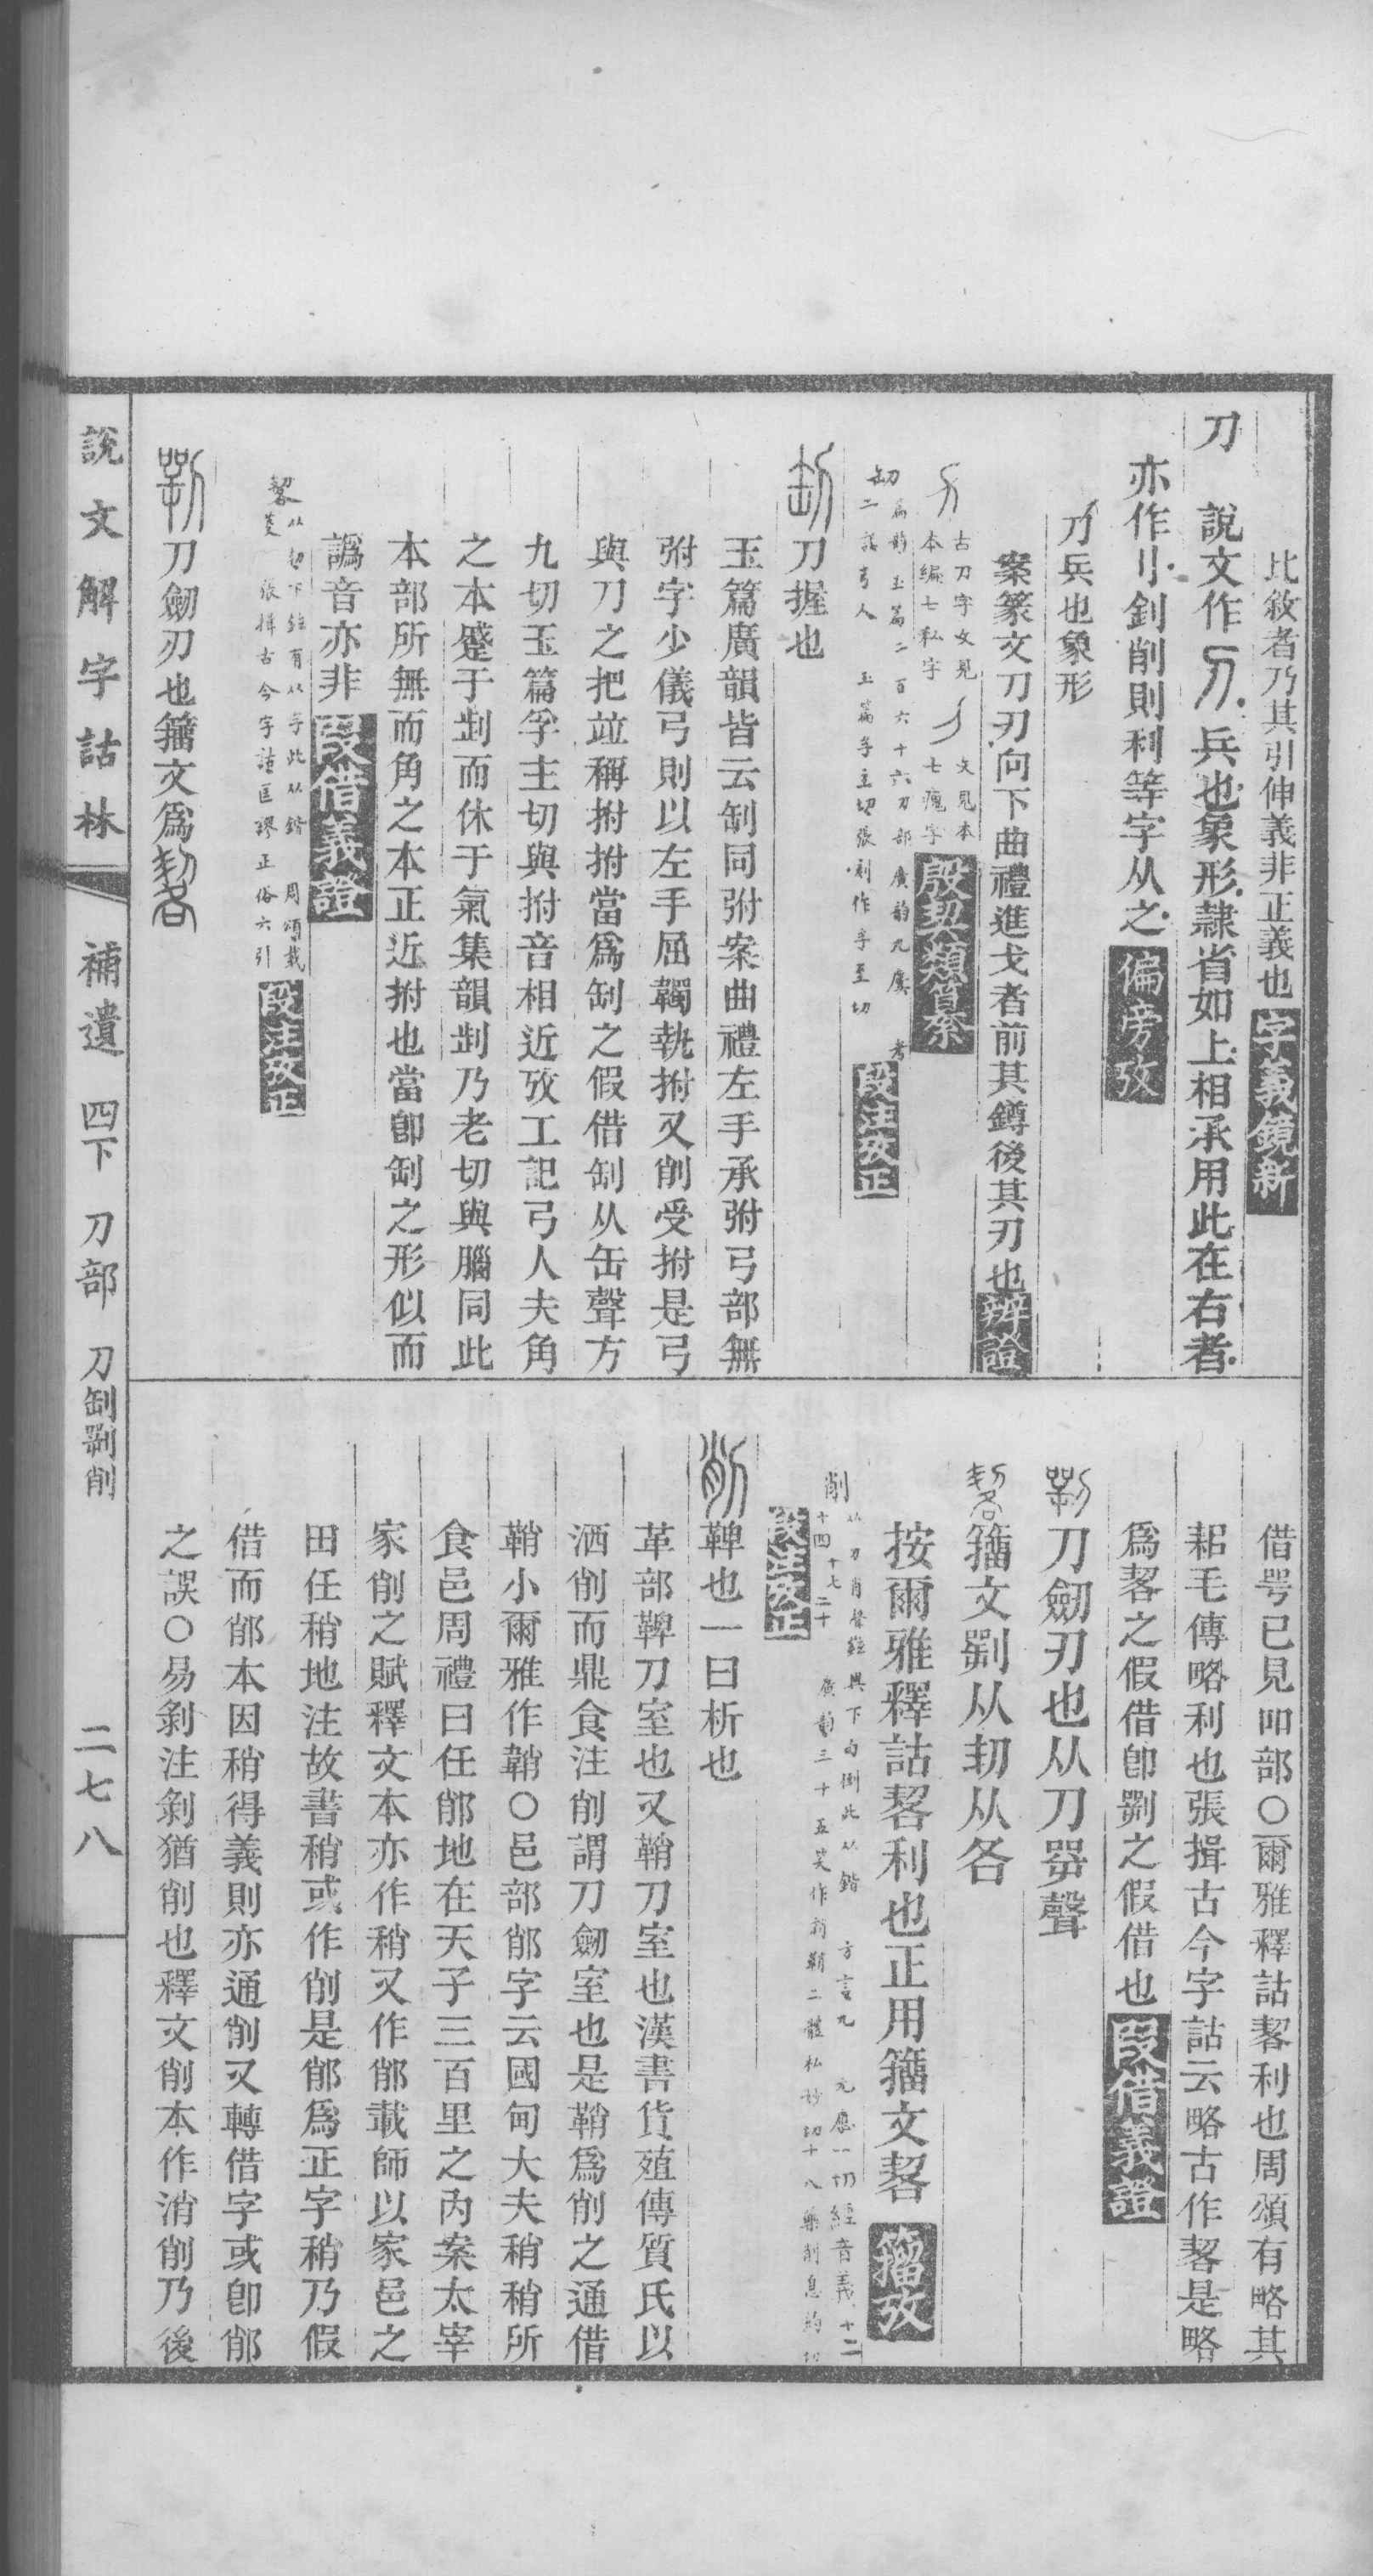 比敘者乃其引伸義非正義也字義鏡新
刀　說文作刀兵也象形隸省如上相承用此在右者
亦作刂釗削則利等字从之偏旁攷
刀兵也象形
案篆文刀刃向下曲禮進戈者前其鐏後其刃也辨證
古刀字文見本編七私字　文見本七瘋字殷契類纂
玉篇二百六十六刀部廣韵九麌
玉篇孚主切段注攷正
刀握也
玉篇廣韻皆云㓡同弣案曲禮左手承弣弓部無
弣字少儀弓則以左手屈韣執拊又削受拊是弓
與刀之把竝稱拊拊當爲㓡之假借㓡从缶聲方
九切玉篇孚主切與拊音相近攷工記弓人夫角
之本蹙于㓮而休于氣集韻㓮乃老切與腦同此
本部所無而角之本正近拊也當卽㓡之形似而
譌音亦非叚借義證
張揖古今字詁匡謬正俗六引段注攷正
刀劒刃也籒文爲㓞各
借咢已見吅部〇爾雅釋詁䂮利也周頌有略其
耜毛傳略利也張揖古今字詁云略古作䂮是略
爲䂮之假借卽㓵之假借也叚借義證
㓵刀劒刃也从刀咢聲
䂮籒文㓵从㓞从各
按爾雅釋詁䂮利也正用籒文䂮籒攷
削　十四　十七　二十　方言九　元應一切經音義十二
廣韵三十五笑　段注攷正
削鞞也一曰析也
革部鞞刀室也又鞘刀室也漢書貨殖傳質氏以
洒削而鼎食注削謂刀劒室也是鞘爲削之通借
鞘小爾雅作韒〇邑部䣝字云國甸大夫稍稍所
食邑周禮曰任䣝地在天子三百里之內案太宰
家削之賦釋文本亦作稍又作䣝載師以家邑之
田任稍地注故書稍或作削是䣝爲正字稍乃假
借而䣝本因稍得義則亦通削又轉借字或卽䣝
之誤〇易剝注剝猶削也釋文削本作消削乃後
說文解字詁林　補遺　四下　刀部　刀㓡㓵削　二七八